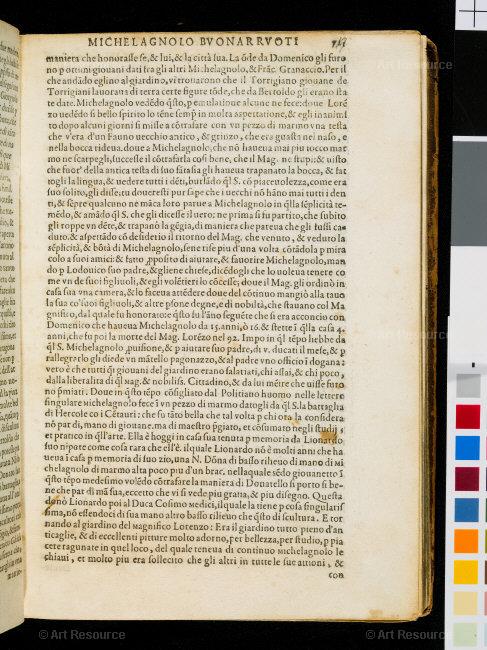 MICHELAGNOLO BVONARRVOTI
maniera che honorasse se, & lui, & la città sua. La ōde da Domenico gli furo
no p ottimi giouani dati fra gli altri Michelagnolo, & Frāc. Granaccio. Per il
che andādo eglino al giardino, vi trouarono che il Torrigiano giouane de
Torrigiani lauoraua di terra certe figure tōde, che da Bertoldo gli erano sta
te date. Michelagnolo vedēdo q̄sto, p emulatione alcune ne fece: doue Lorē
zo vedēdo sì bello spirito lo tēne semp̄ in molta aspettatione, & egli inanimi
to dopo alcuni giorni si mise a cōtrafare con vn pezzo di marmo vna testa
che v'era d'un Fauno vecchio antico, & grinzo, che era guasta nel naso, e
nella bocca rideua. doue a Michelagnolo, che nō haueua mai piu tocco mar
mo ne scarpegli, successe il cōtrafarla così bene, che il Mag. ne stupì: & uisto
che fuor' della antica testa di suo fātasia gli haueua trapanato la bocca, & fat
togli la lingua, & uedere tutti i dēti, burlādo q̄l S. cō piaceuolezza, come era
suo solito, gli disse: tu doueresti pur sape che i uecchi nō hāno mai tutti i den
ti, & sēpre qualcuno ne māca loro parue a Michelagnolo in q̄lla sēplicità te-
mēdo, & amādo q̄l S. che gli dicesse il uero: ne prima si fu partito, che subito
gli roppe vn dēte, & trapanò la gēgia, di maniera che pareua che gli fussi ca-
duto. & aspettādo cō desiderio il ritorno del Mag. che venuto, & veduto la
sēplicità, & bōtà di Michelagnolo, se ne rise piu d'una volta cōtādola p mira
colo a suoi amici: & fatto pposito di aiutare, & fauorire Michelagnolo, man
dò p Lodouico suo padre, & gliene chiese, dicēdogli che lo uoleua tenere co
me vn de suoi figliuoli, & egli volētieri lo cōcesse; doue il Mag. gli ordinò in
casa sua vna camera, & lo faceua attēdere doue del cōtinuo mangiò alla tauo
la sua co' suoi figliuoli, & altre psone degne, e di nobiltà, che stauano col Ma
gnifico, dal quale fu honorato: e q̄sto fu l'āno seguēte che si era acconcio con
Domenico che haueua Michelagnolo da 15. anni, ò 16. & stette ī q̄lla casa 4.
anni, che fu poi la morte del Mag. Lorēzo nel 92. Impo in q̄l tēpo hebbe da
q̄l S. Michelagnolo, puisione, & p aiutare suo padre, di v. ducati il mese, & p
rallegrarlo gli diede vn mātello pagonazzo, & al padre vno officio ī dogana:
vero è che tutti q̄i giouani del giardino erano salariati, chi assai, & chi poco,
dalla liberalità di q̄l Mag. & nobiliss. Cittadino, & da lui mētre che uisse furo
no pmiati: Doue in q̄sto tēpo cōsigliato dal Politiano huomo nelle lettere
singulare Michelagnolo fece ī vn pezzo di marmo datogli da q̄l S. la battaglia
di Hercole co i Cētauri: che fu tāto bella che tal volta p chi ora la considera
nō par di, mano di giouane. ma di maestro pgiato, et cōsumato negli studij,
et pratico in q̄ll'arte. Ella è hoggi in casa sua tenuta p memoria da Lionardo
suo nipote come cosa rara che ell'è. il quale Lionardo nō è molti anni che ha
ueua ī casa p memoria di suo zio, una N. Dōna di basso rilieuo di mano di Mi
chelagnolo di marmo alta poco piu d'un brac. nella quale sēdo giouanetto ī
q̄sto tēpo medesimo volēdo cōtrafare la maniera di Donatello si portò sì be-
ne che par di mā sua, eccetto che vi si vede piu gratia, & piu disegno. Questa
donò Lionardo poi al Duca Cosimo Medici, il quale la tiene p cosa singularis
sima, nō essendoci di sua mano altro basso rilieuo che q̄sto di scultura. E tor
nando al giardino del Magnifico Lorenzo: Era il giardino tutto pieno d'an
ticaglie, & di eccellenti pitture molto adorno, per bellezza, per studio, p pia
cere ragunate in quel loco, del quale teneua di continuo Michelagnolo le
chiaui, et molto piu era sollecito che gli altri in tutte le sue attioni, &
con
© Art Resource © Art Resource © Art Resource
© Art Resource © Art Resource © Art Resource